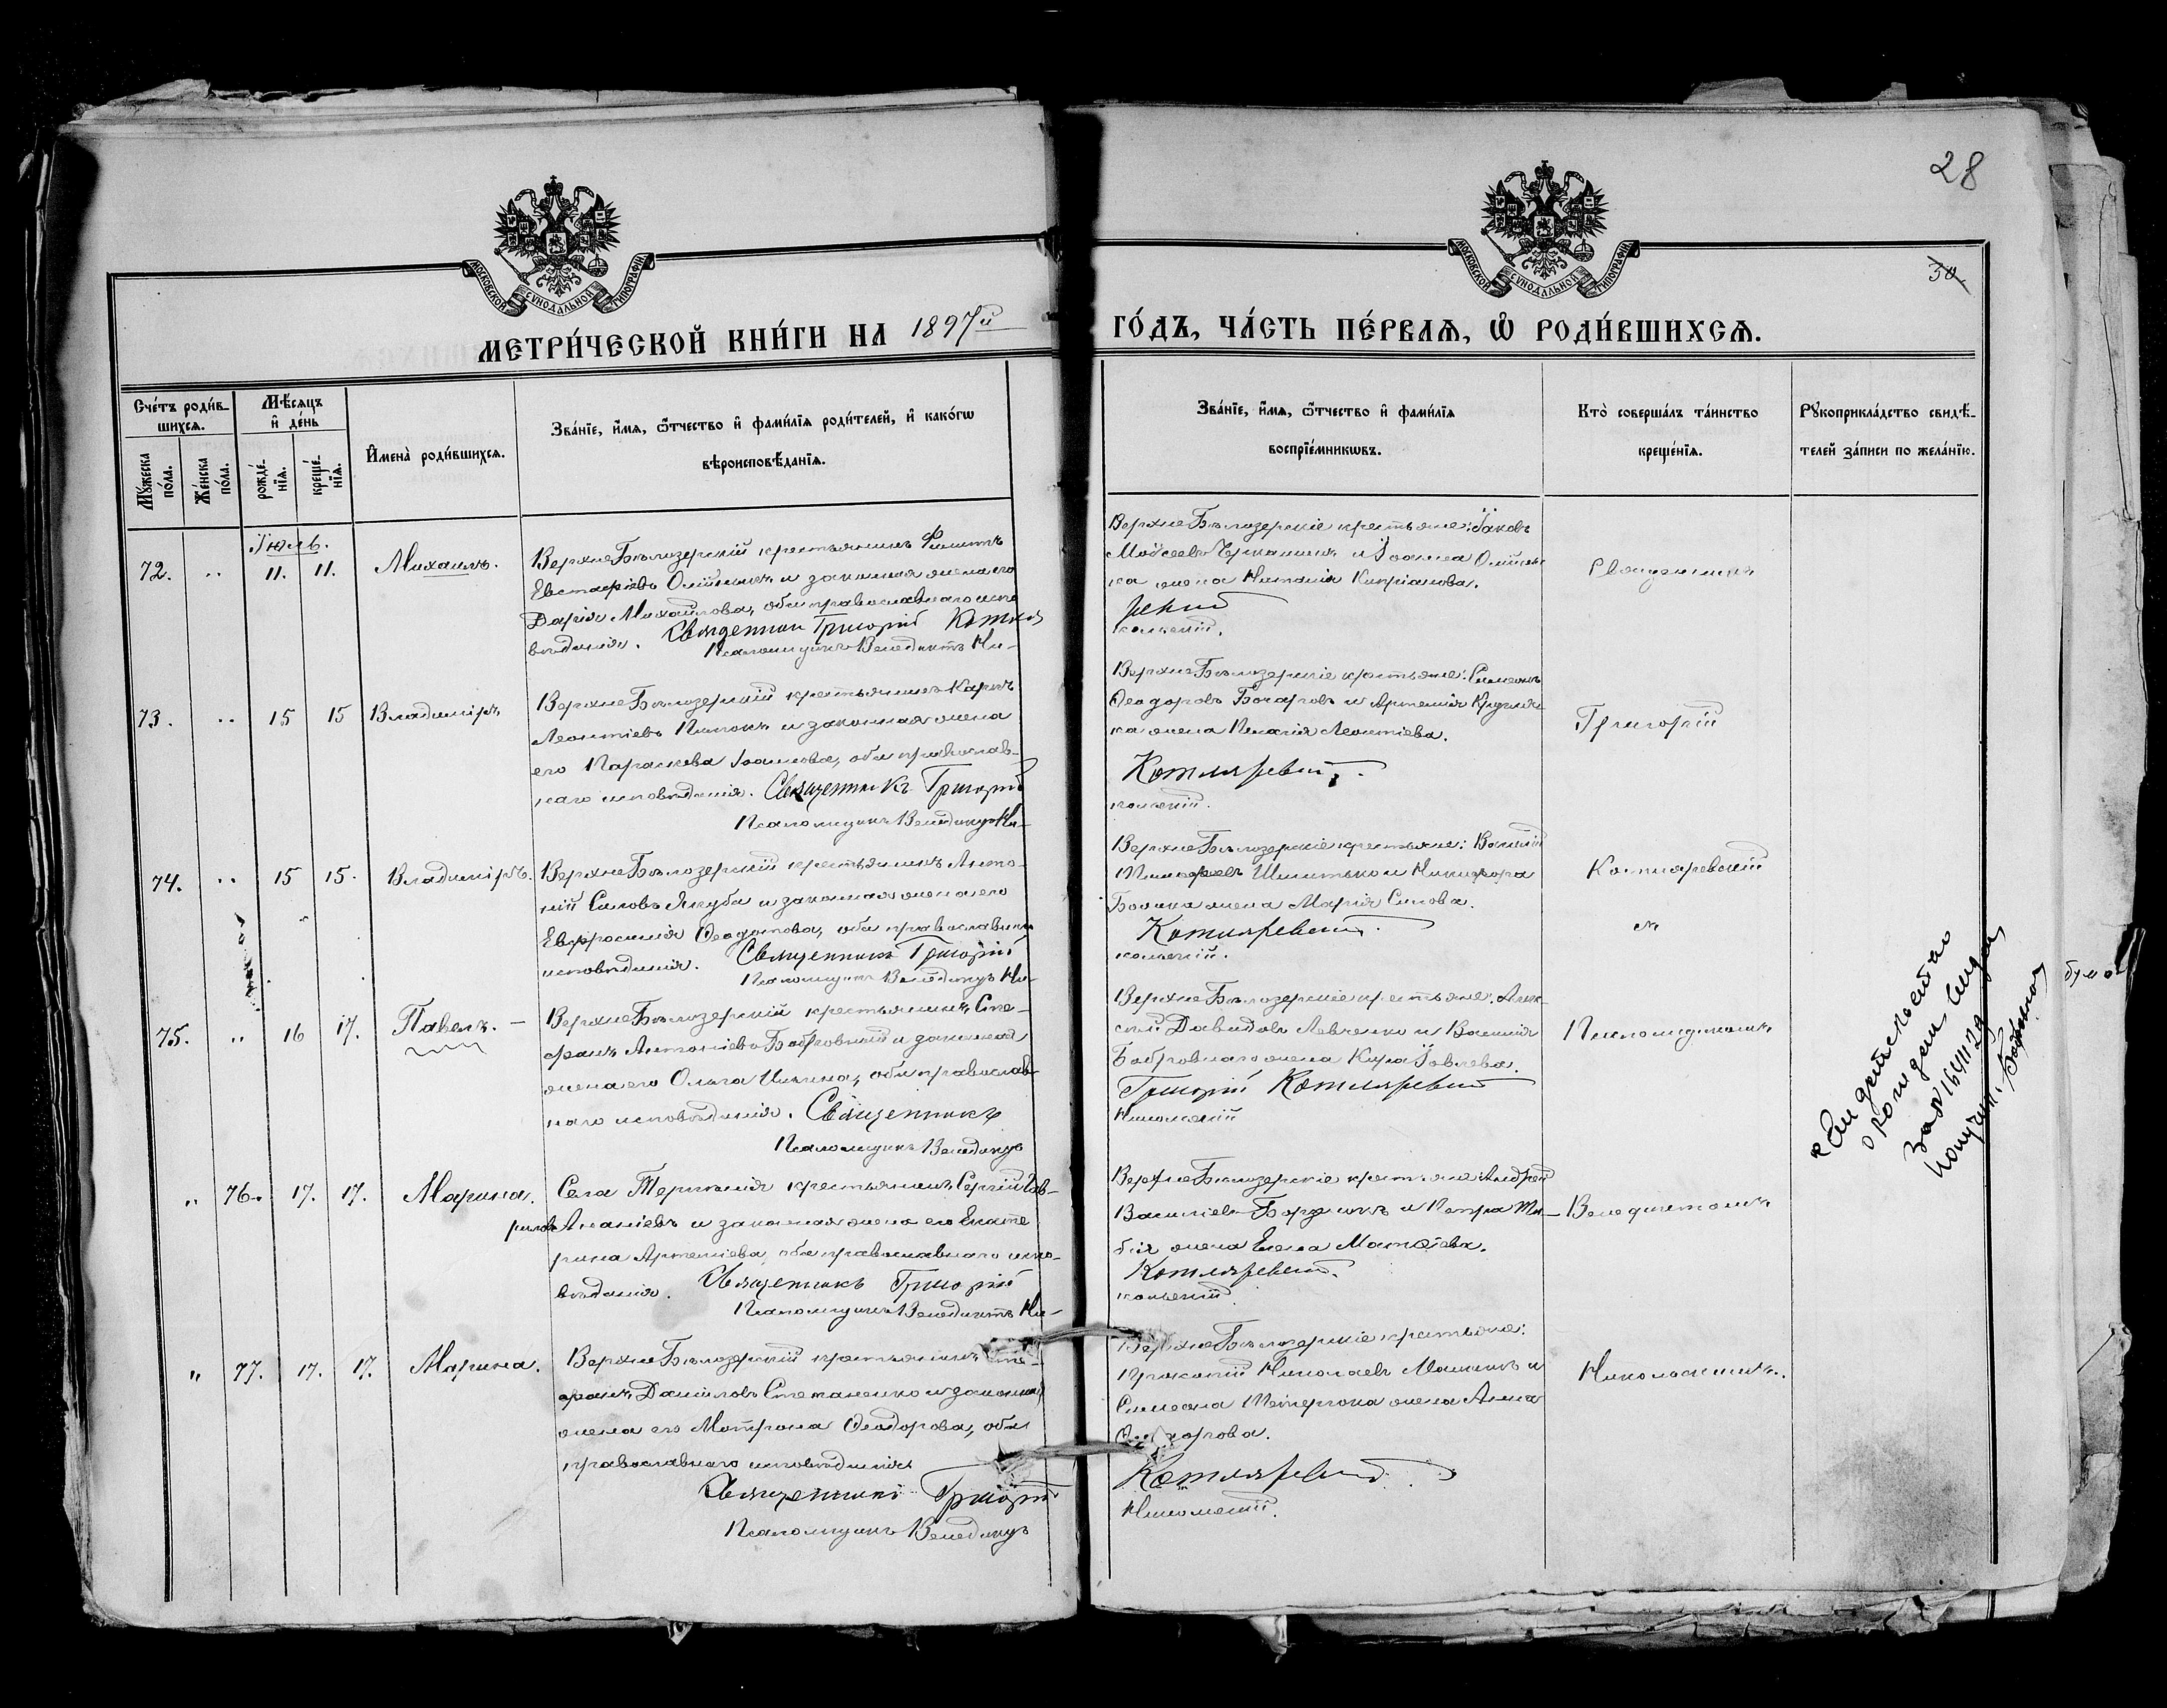 28
30
МОСКОВСКОЙ СѴНОДАЛЬНОЙ ТИПОГРАФІИ
МОСКОВСКОЙ СѴНОДАЛЬНОЙ ТИПОГРАФІИ
МЕТРИ́ЧЕСКОЙ КНИ́ГИ НА 1897й ГО́ДЪ, ЧА́СТЬ ПЕ́РВАЯ, Ѡ РОДИ́ВШИХСЯ.
Сче́тъ роди́в-
шихся.
Мꙋ́жеска по́ла.
Же́нска по́ла.
Мѣ́сяцъ
и҆ де́нь
рожде́-
нїя.
креще́-
нїя.
И҆мена̀ роди́вшихся.
Зва́нїе, и҆́мя, ѻ҆́тчество и҆ фами́лїя роди́телей, и҆ како́гѡ
вѣроисповѣ́данїя.
Зва́нїе, и҆́мя, ѻ҆́тчество и҆ фами́лїя
воспрїе́мникѡвъ.
Кто̀ соверша́лъ та́инство
креще́нїя.
Рꙋкоприкла́дство свидѣ́-
телей за́писи по жела́нїю.
Іюль.
72. „ 11. 11. Михаилъ.
Верхне Бѣлозерскій крестьянинъ Филиппъ
Евстафіевъ Олійникъ и законная жена его
Дарія Михайлова, оба православнаго испо
вѣданія. Священник Григорій Котля
Псаломщикъ Венедиктъ Ни-
Верхне Бѣлозерскіе крестьяне: Іаковъ
Моѵсеевъ и Іоанна Олійни
ка жена Наталія Кипріанова.
ревскій
кольскій.
Священникъ
73. „ 15 15 Владиміръ
Верхне Бѣлозерскій крестьянинъ Карпъ
Леонтіевъ и законная жена
его Параскева Іоаннова, оба православ-
наго исповѣданія. Священникъ Григорій
Псаломщикъ Венедиктъ Ни-
Верхне Бѣлозерскіе крестьяне: Симеонъ
Ѳеодоровъ Бочаровъ и Артемія
ка жена Пелагія Леонтіева.
Котляревскій.
кольскій.
Григорій
74. „ 15 15. Владиміръ.
Верхне Бѣлозерскій крестьянинъ Анто-
ній Силовъ Якуба и законная жена его
Евфросинія Ѳеодотова, оба православнаго
исповѣданія. Священникъ Григорій
Псаломщикъ Венедиктъ Ни-
Верхне Бѣлозерскіе крестьяне: Василій
и Никифора
жена Марія Силова.
Котляревскій.
кольскій.
Котляревскій
съ
75. „ 16 17. Павелъ. —
Верхне Бѣлозерскій крестьянинъ Сте-
фанъ Антоніевъ Бобровный и законная
жена его Ольга Ильина, оба православ-
наго исповѣданія. Священникъ
Псаломщикъ Венедиктъ
Верхне Бѣлозерскіе крестьяне: Алек-
сѣй Давидовъ Левченко и Василія
Бобровнаго жена Кира Іовлева.
Григорій Котляревскій
Никольскій
Псаломщикомъ
„ 76. 17. 17. Марина.
Села Терпѣнія крестьянинъ Сергій Гав-
риловъ Ананіевъ и законная жена его Екате
рина Артеміева, оба православнаго испо-
вѣданія. Священникъ Григорій
Псаломщикъ Венедиктъ Ни-
Верхне Бѣлозерскіе крестьяне: Андрей
Василіевъ и Петра
жена Елена Матѳіева.
Котляревскій.
кольскій
Венедиктомъ
„ 77. 17. 17. Марина.
Верхне Бѣлозерскій крестьянинъ Сте-
фанъ Даніиловъ Степаненко и законная
жена его Матрона Ѳеодорова, оба
православнаго исповѣданія
Священникъ Григорій
Псаломщикъ Венедиктъ
Верхне Бѣлозерскіе крестьяне:
Николаевъ и
Симеона жена Анна
Ѳеодорова.
Котляревскій.
Никольскій.
Никольскимъ.
о рожден
за № 1641
получил.